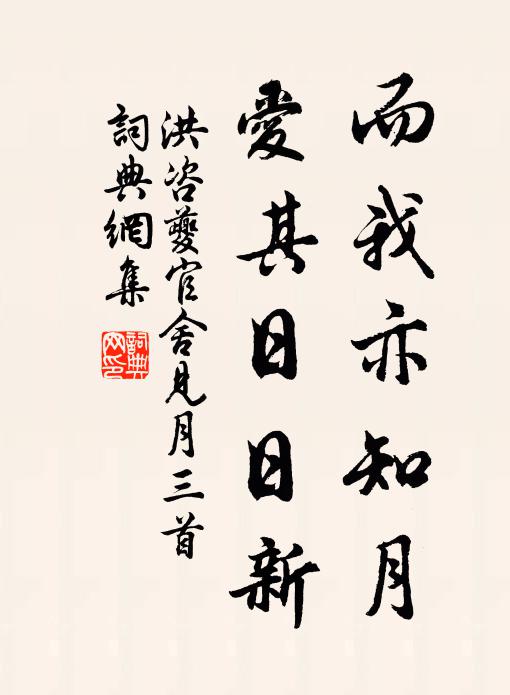 而我亦知月
愛其日日新
洪咨夔官舍見月三首
詞典網集
詞典网印